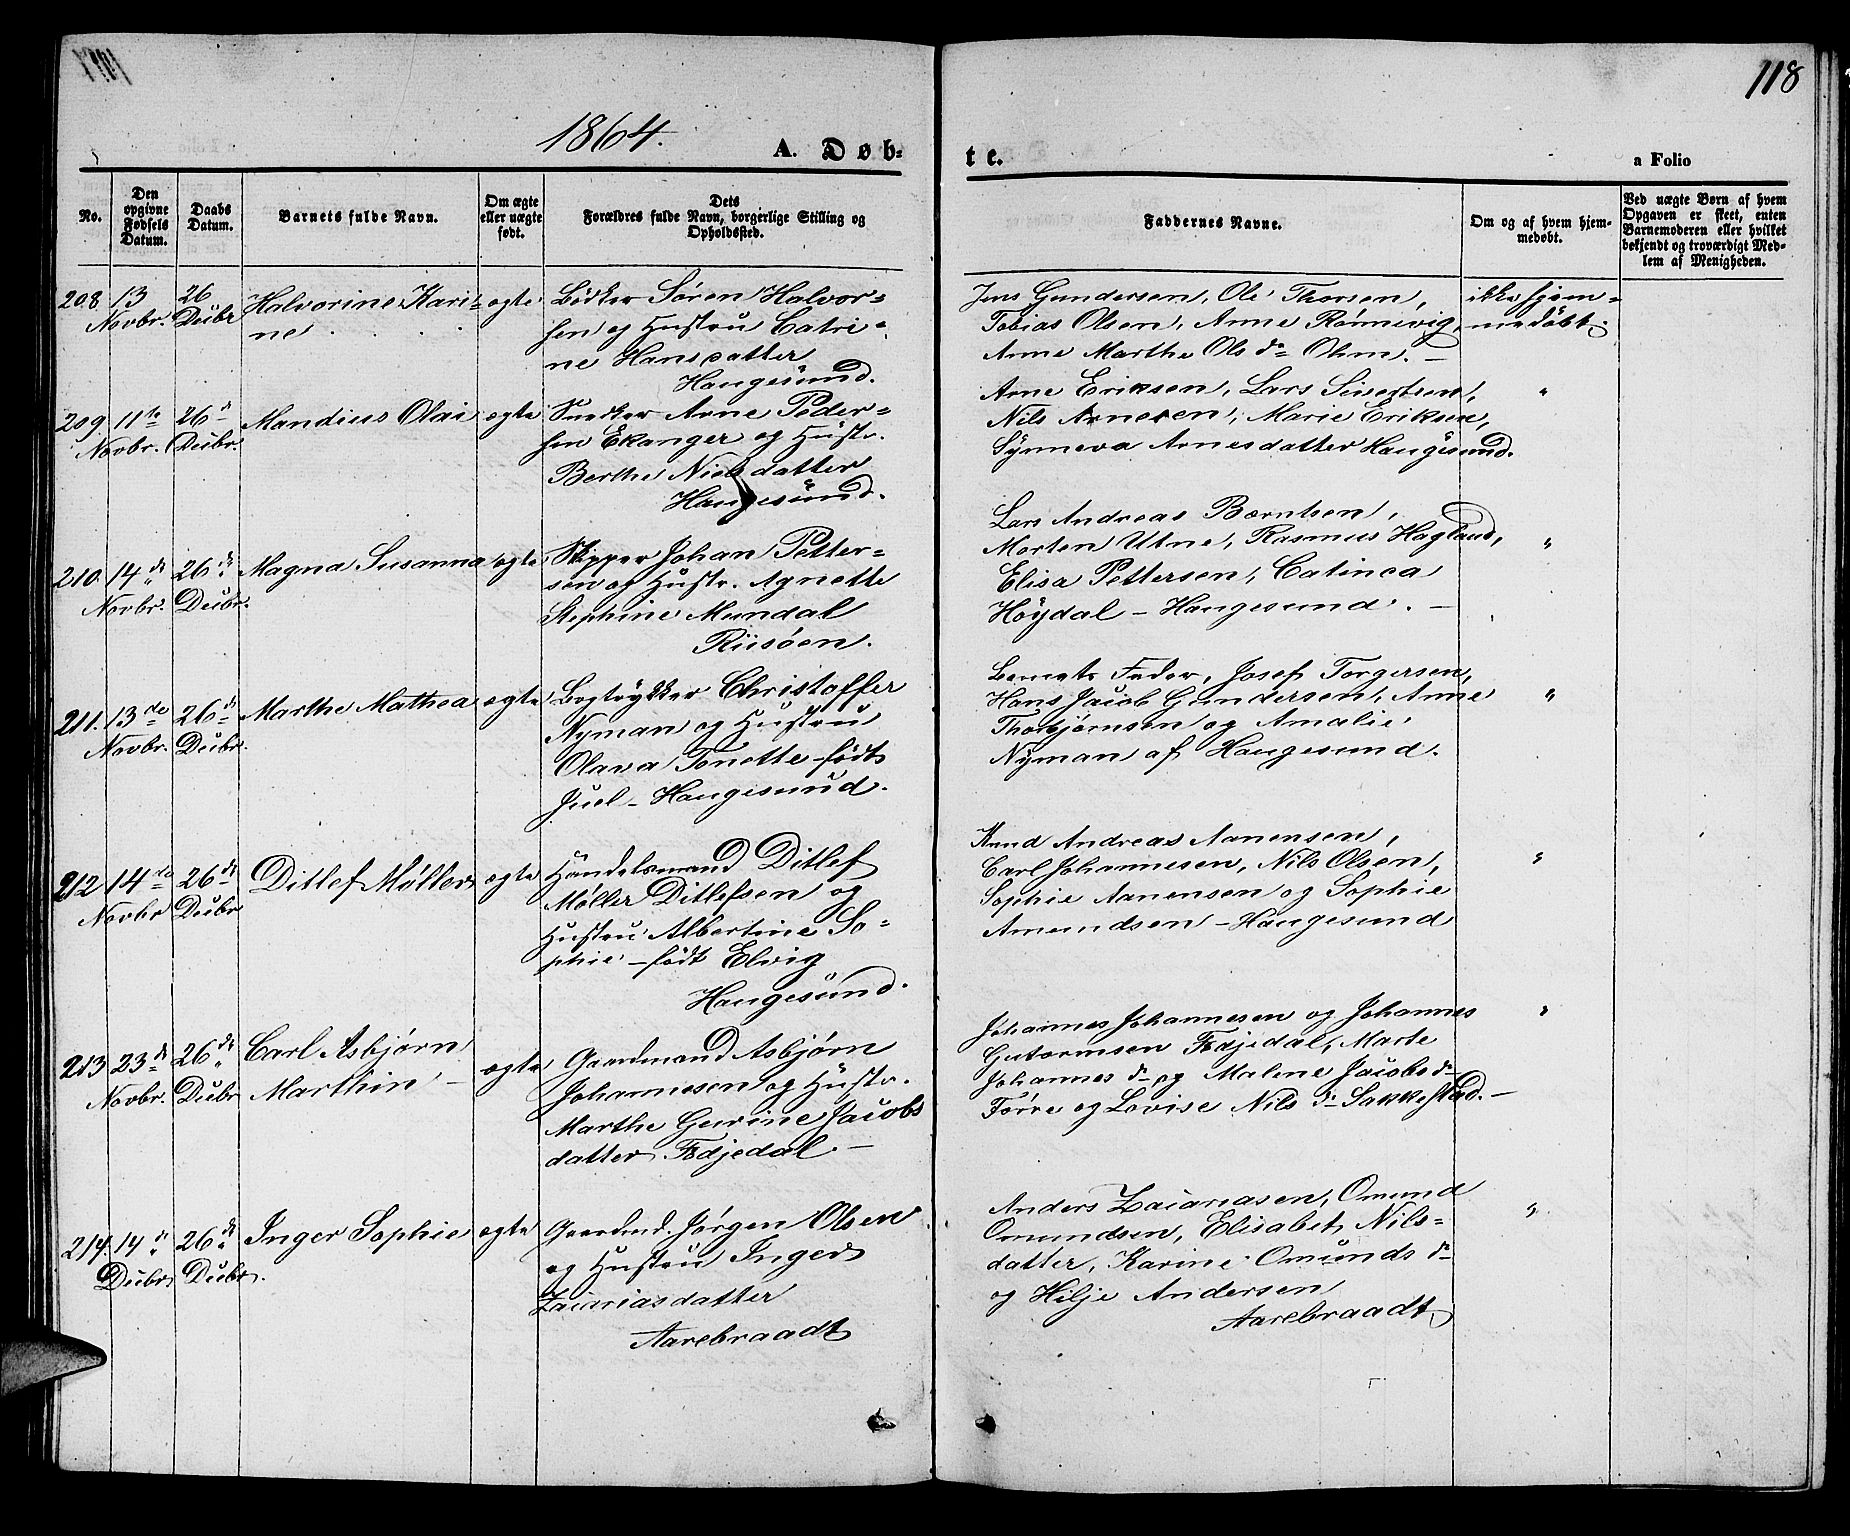 118
1864.
A. Døb-
te.
a Folio
No.
Den
opgivne
Fødsels
Datum.
Daabs
Datum.
Barnets fulde Navn.
Om ægte
eller uægte
født.
Dets
Forældres fulde Navn, borgerlige Stilling og
Opholdssted.
Faddernes Navne.
Om og af hvem hjem-
medøbt.
Ved uægte Børn af hvem
Opgaven er skeet, enten
Barnemoderen eller hvilket
bekjendt og troværdigt Med-
lem af Menigheden.
208. 13 Novbr. 26 Decbr Halvorine Kari-
ne
ægte
Bødker Søren Halvor-
sen og Hustru Catri-
ne Hansdatter
Haugesund.
Jens Gundersen, Ole Thorsen,
Tobias Olsen, Anne Rønnevig,
Anne Marthe Ols dr Ohm. —
ikke hjem-
medøbt.
209. 11te Novbr. 26d Decbr. Mandius Olai
ægte
Snedker Arne Peder-
sen Ekanger og Hustr.
Berthe Nielsdatter
Haugesund.
Arne Eriksen, Lars Sivertsen,
Nils Arnesen, Marie Eriksen,
Synneva Arnesdatter Haugesund.
"
210. 14de Novbr. 26de Decbr. Magna Susanna
ægte
Skipper Johan Petter-
sen og Hustr. Agnette
Stephine Mundal
Riisøen.
Lars Andreas Berntsen,
Morten Utne, Rasmus Hagland,
Elisa Pettersen, Catinca
Høydal — Haugesund. —
"
211. 13de Novbr. 26de Decbr. Marthe Mathea
ægte
Bogtrykker Christoffer
Nyman og Hustru
Olava Tonette født
Juel — Haugesund.
Barnets Fader, Josef Torgersen,
Hans Jacob Gundersen, Anne
Thorbjørnsen og Amalie
Nyman af Haugesund.
"
212 14de Novbr 26de Decbr Ditlef Møller
ægte
Handelsmand Ditlef
Møller Ditlefsen og
Hustru Albertine So-
phie — født Elvig
Haugesund.
Knud Andreas Aanensen,
Carl Johannesen, Nils Olsen,
Sophie Aanensen og Sophie
Amundsen — Haugesund
"
213 23de Novbr. 26de Decbr Carl Asbjørn
Marthin —
ægte
Gaardmand Asbjørn
Johannesen og Hustr.
Marthe Gurine Jacobs
datter Fødjedal. —
Johannes Johannesen og Johannes
Gutormsen Fødjedal, Marte
Johannes dr og Malene Jacobs dr
Førre og Lovise Nils dr Sakkestad. —
"
214. 14de Decbr 26de Decbr. Inger Sophie
ægte
Gaardmd. Jørgen Olsen
og Hustru Inger
Zacariasdatter
Aarebraadt
Anders Zacariasen, Omund
Omundsen, Elisabet Nils-
datter, Karine Omunds dr
og Hilje Andersen
Aarebraadt
"